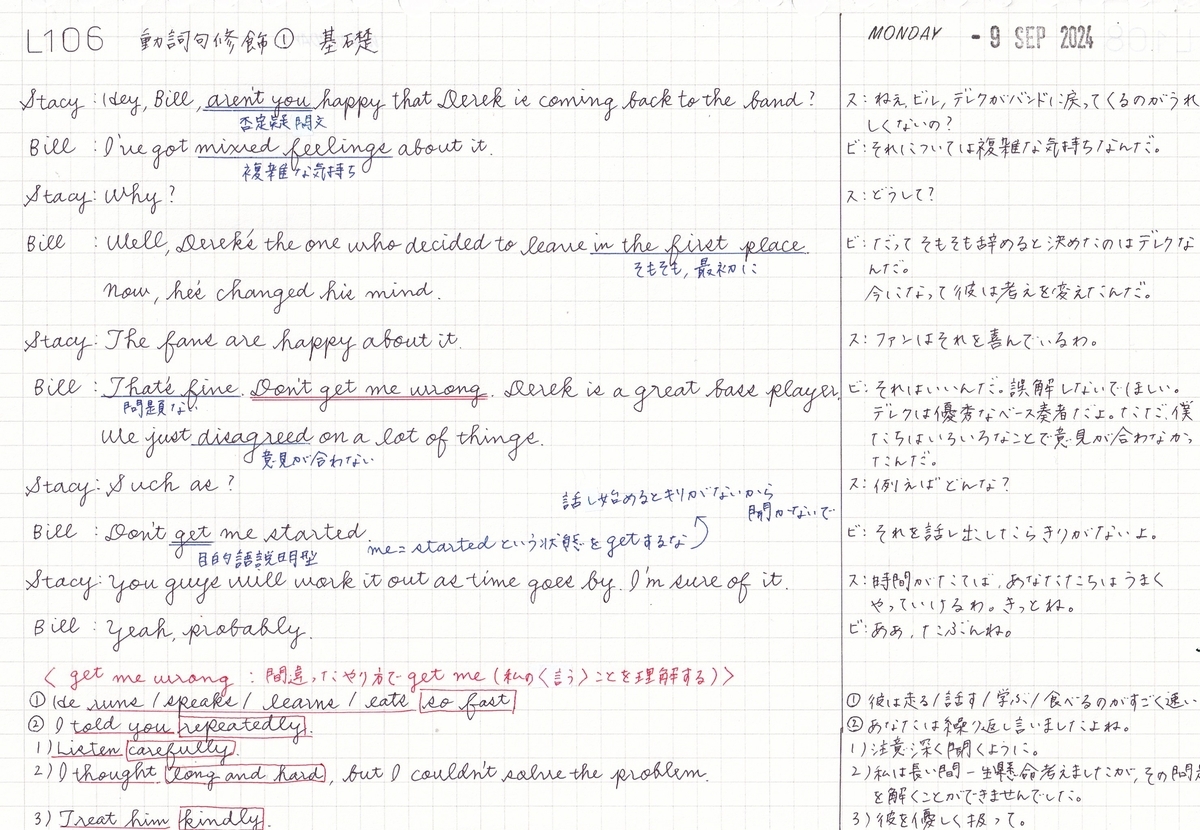 L106 動詞句修飾① 基礎
MONDAY - 9 SEP 2024
Stacy : Hey, Bill, aren't you happy that Derek is coming back to the band?
否定疑問文
Bill : I've got mixed feelings about it.
複雑な気持ち
Stacy : Why?
Bill : Well, Derek's the one who decided to leave in the first place.
そもそも, 最初に
Now, he's changed his mind.
Stacy : The fans are happy about it.
Bill : That's fine. Don't get me wrong. Derek is a great bass player.
問題ない
We just disagreed on a lot of things.
意見が合わない
Stacy : Such as?
話し始めるとキリがないから
聞かないで
Bill : Don't get me started.
目的語説明型
me = started という状態を getするな
Stacy : You guys will work it out as time goes by. I'm sure of it.
Bill : Yeah, probably.
〈 get me wrong : 間違ったやり方で get me (私の〈言う〉ことを理解する)〉
① He runs / speaks / learns / eats so fast
② I told you repeatedly.
1) Listen carefully.
2) I thought long and hard, but I couldn't solve the problem.
3) Treat him kindly.
ス : ねえ、ビル, デレクがバンドに戻ってくるのがうれ
しくないの?
ビ : それについては複雑な気持ちなんだ。
ス : どうして?
ビ : だって そもそも辞めると決めたのはデレクな
んだ。
今になって彼は考えを変えたんだ。
ス : ファンはそれを喜んでいるわ。
ビ : それはいいんだ。誤解しないでほしい。
デレクは優秀なベース奏者だよ。ただ、僕
たちはいろいろなことで意見が合わなかっ
たんだ。
ス : 例えばどんな?
ビ : それを話し出したらきりがないよ。
ス : 時間がたてば、あなたたちはうまく
やっていけるわ。きっとね。
ビ : ああ, たぶんね。
① 彼は走る/話す/学ぶ/食べるのがすごく速い
② あなたには繰り返し言いましたよね。
1) 注意深く聞くように。
2) 私は長い間一生懸命考えましたが, その問題
を解くことができませんでした。
3) 彼を優しく扱って。